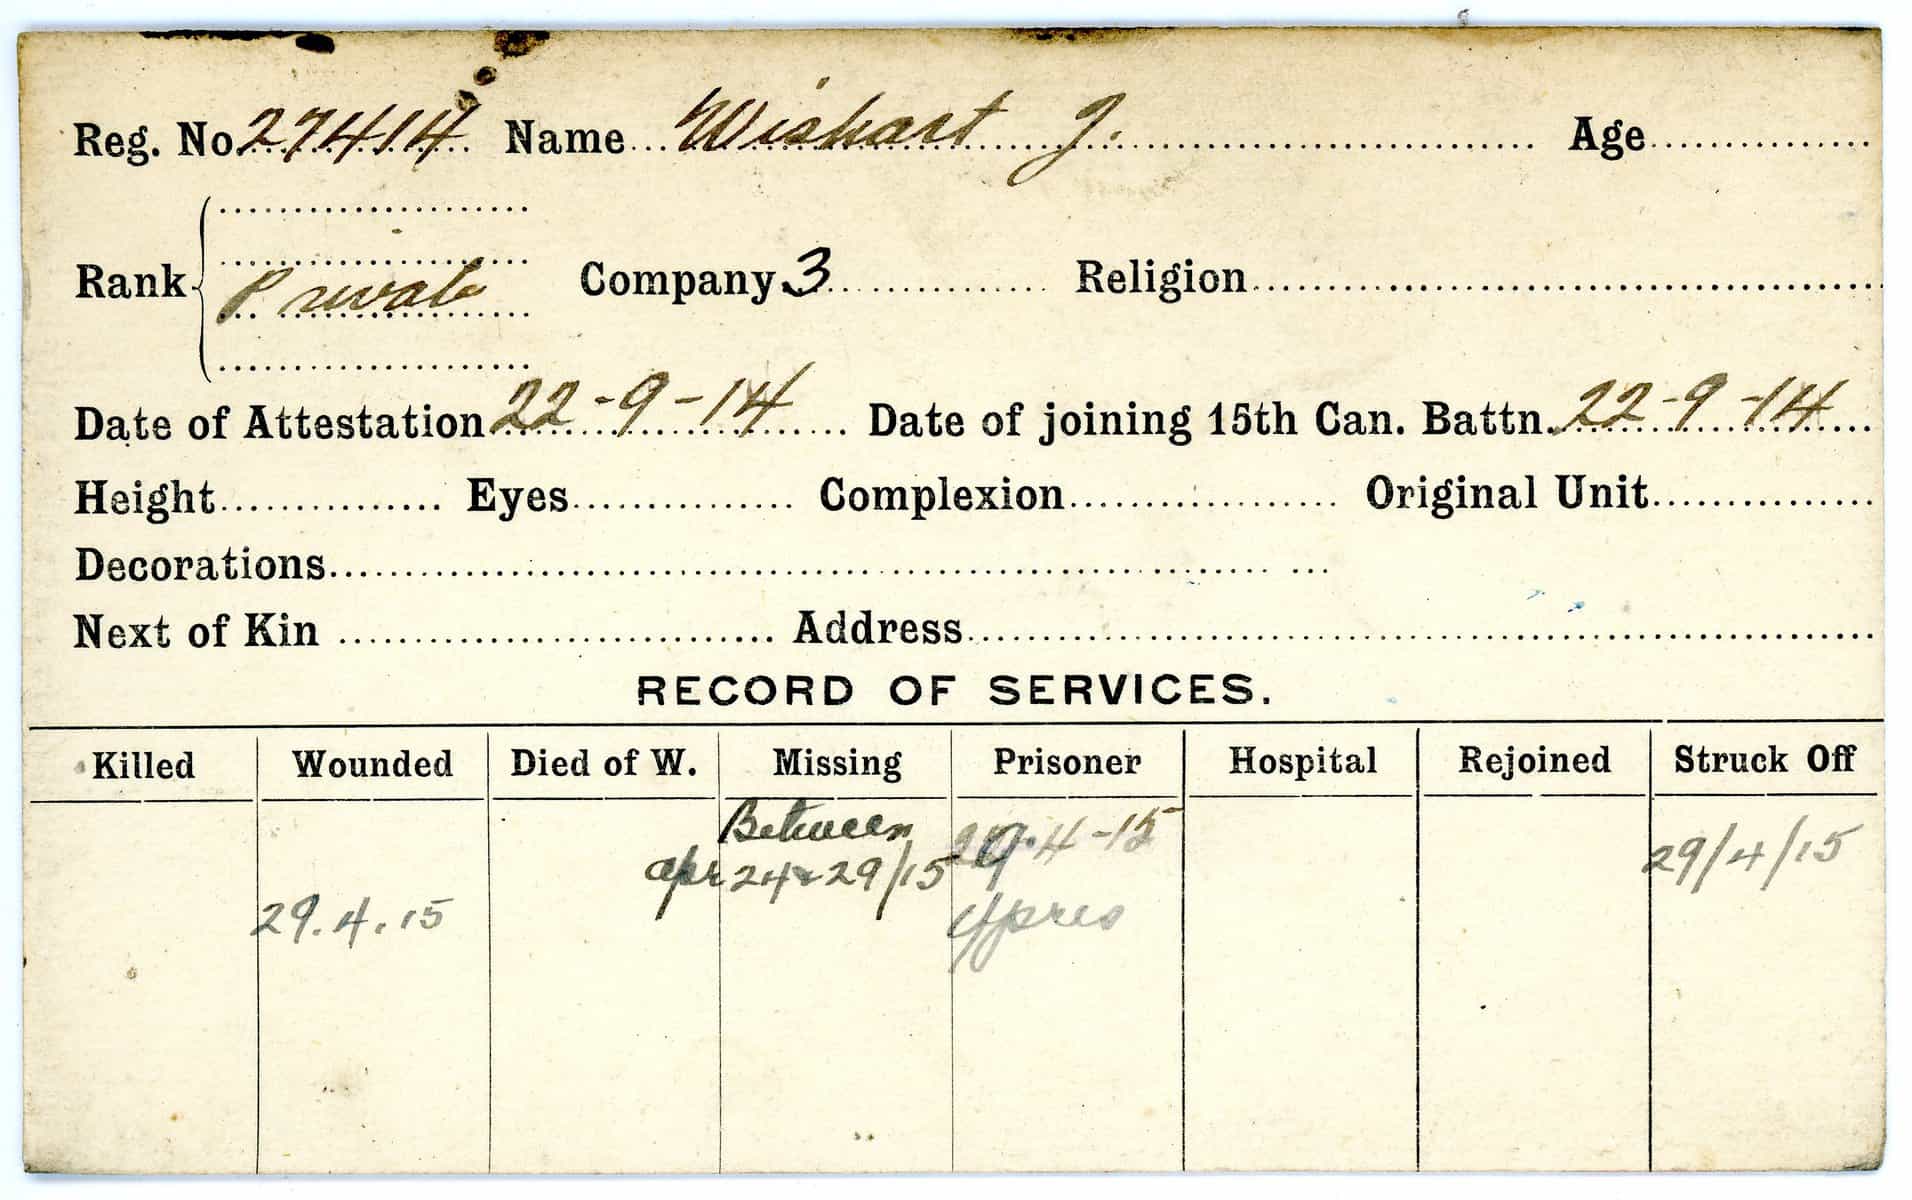 Reg. No. 27414 Name Wishart J. Age
Rank Private Company 3 Religion
Date of Attestation 22-9-14 Date of joining 15th Can. Battn. 22-9-14
Height Eyes Complexion Original Unit
Decorations
Next of Kin Address
RECORD OF SERVICES.
Killed Wounded Died of W. Missing Prisoner Hospital Rejoined Struck Off
Between
apr 24 & 29/15 29.4-15 29/4/15
29.4.15 Ypres